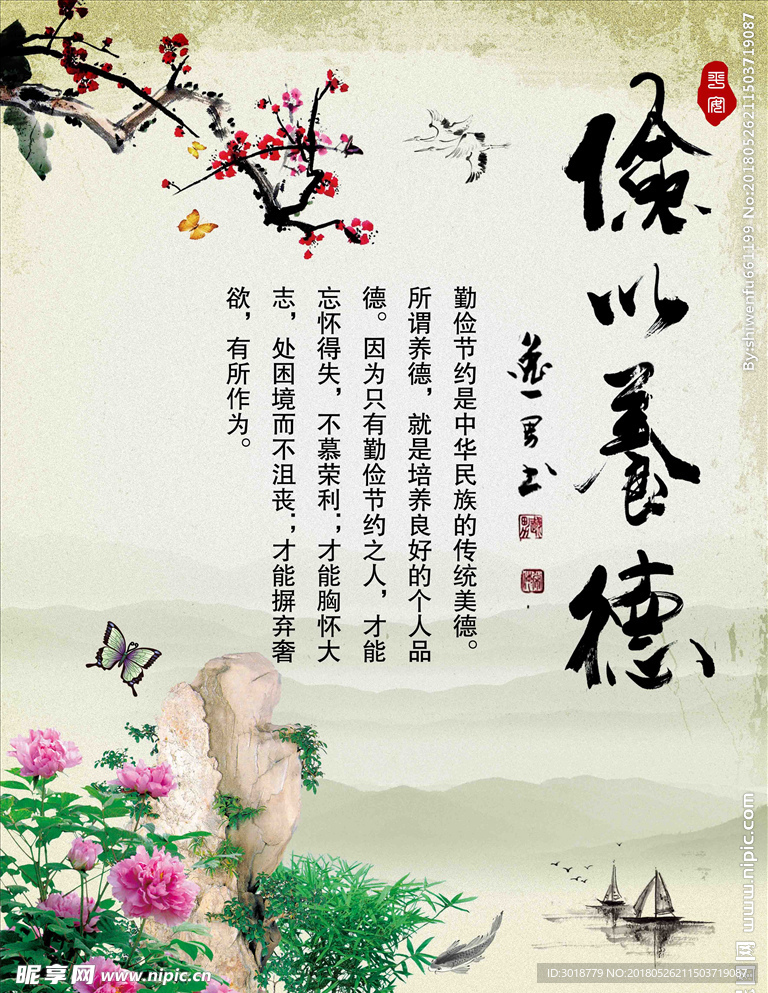 儉以養德
平安
勤俭节约是中华民族的传统美德。
所谓养德，就是培养良好的个人品
德。因为只有勤俭节约之人，才能
忘怀得失，不慕荣利；才能胸怀大
志，处困境而不沮丧；才能摒弃奢
欲，有所作为。
By:shiwenfu661199 No:20180526211503719087
www.nipic.com
昵享网 www.nipic.cn
ID:3018779 NO:20180526211503719087